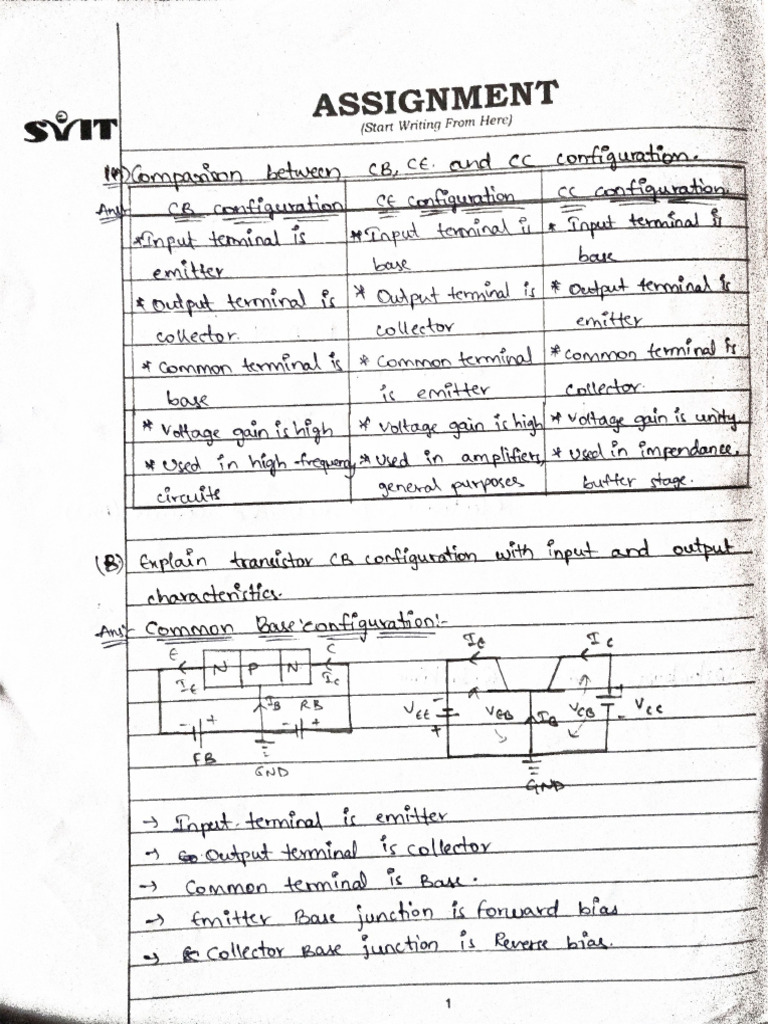 SVIT
ASSIGNMENT
(Start Writing From Here)
(A) Comparison between CB, CE and CC configuration.
Ans:- CB configuration CE configuration CC configuration
*Input terminal is emitter
*Input terminal is base
* Input terminal is base
* Output terminal is collector.
* Output terminal is collector
* Output terminal is emitter
* Common terminal is base
* Common terminal is emitter
* Common terminal is collector.
* Voltage gain is high
* Voltage gain is high
* Voltage gain is unity.
* Used in high-frequency circuits
* Used in amplifiers, general purposes
* Used in impendance, buffer stage.
(B.) Explain transistor CB configuration with input and output
characteristics.
Ans:- Common Base configuration:-
E N P N C
IE IB RB IC
- + - +
FB GND
IE IC
VEE VEB IB VCB VCC
- + + -
GND
→ Input terminal is emitter
→ Output terminal is collector
→ Common terminal is Base.
→ Emitter Base junction is forward bias
→ Collector Base junction is Reverse bias.
1